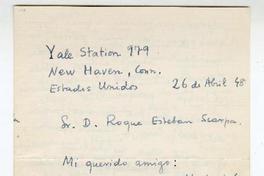 Yale Station 979
New Haven, Conn.
Estados Unidos 26 de Abril 48
Sr. D. Roque Esteban Scarpa.
Mi querido amigo: